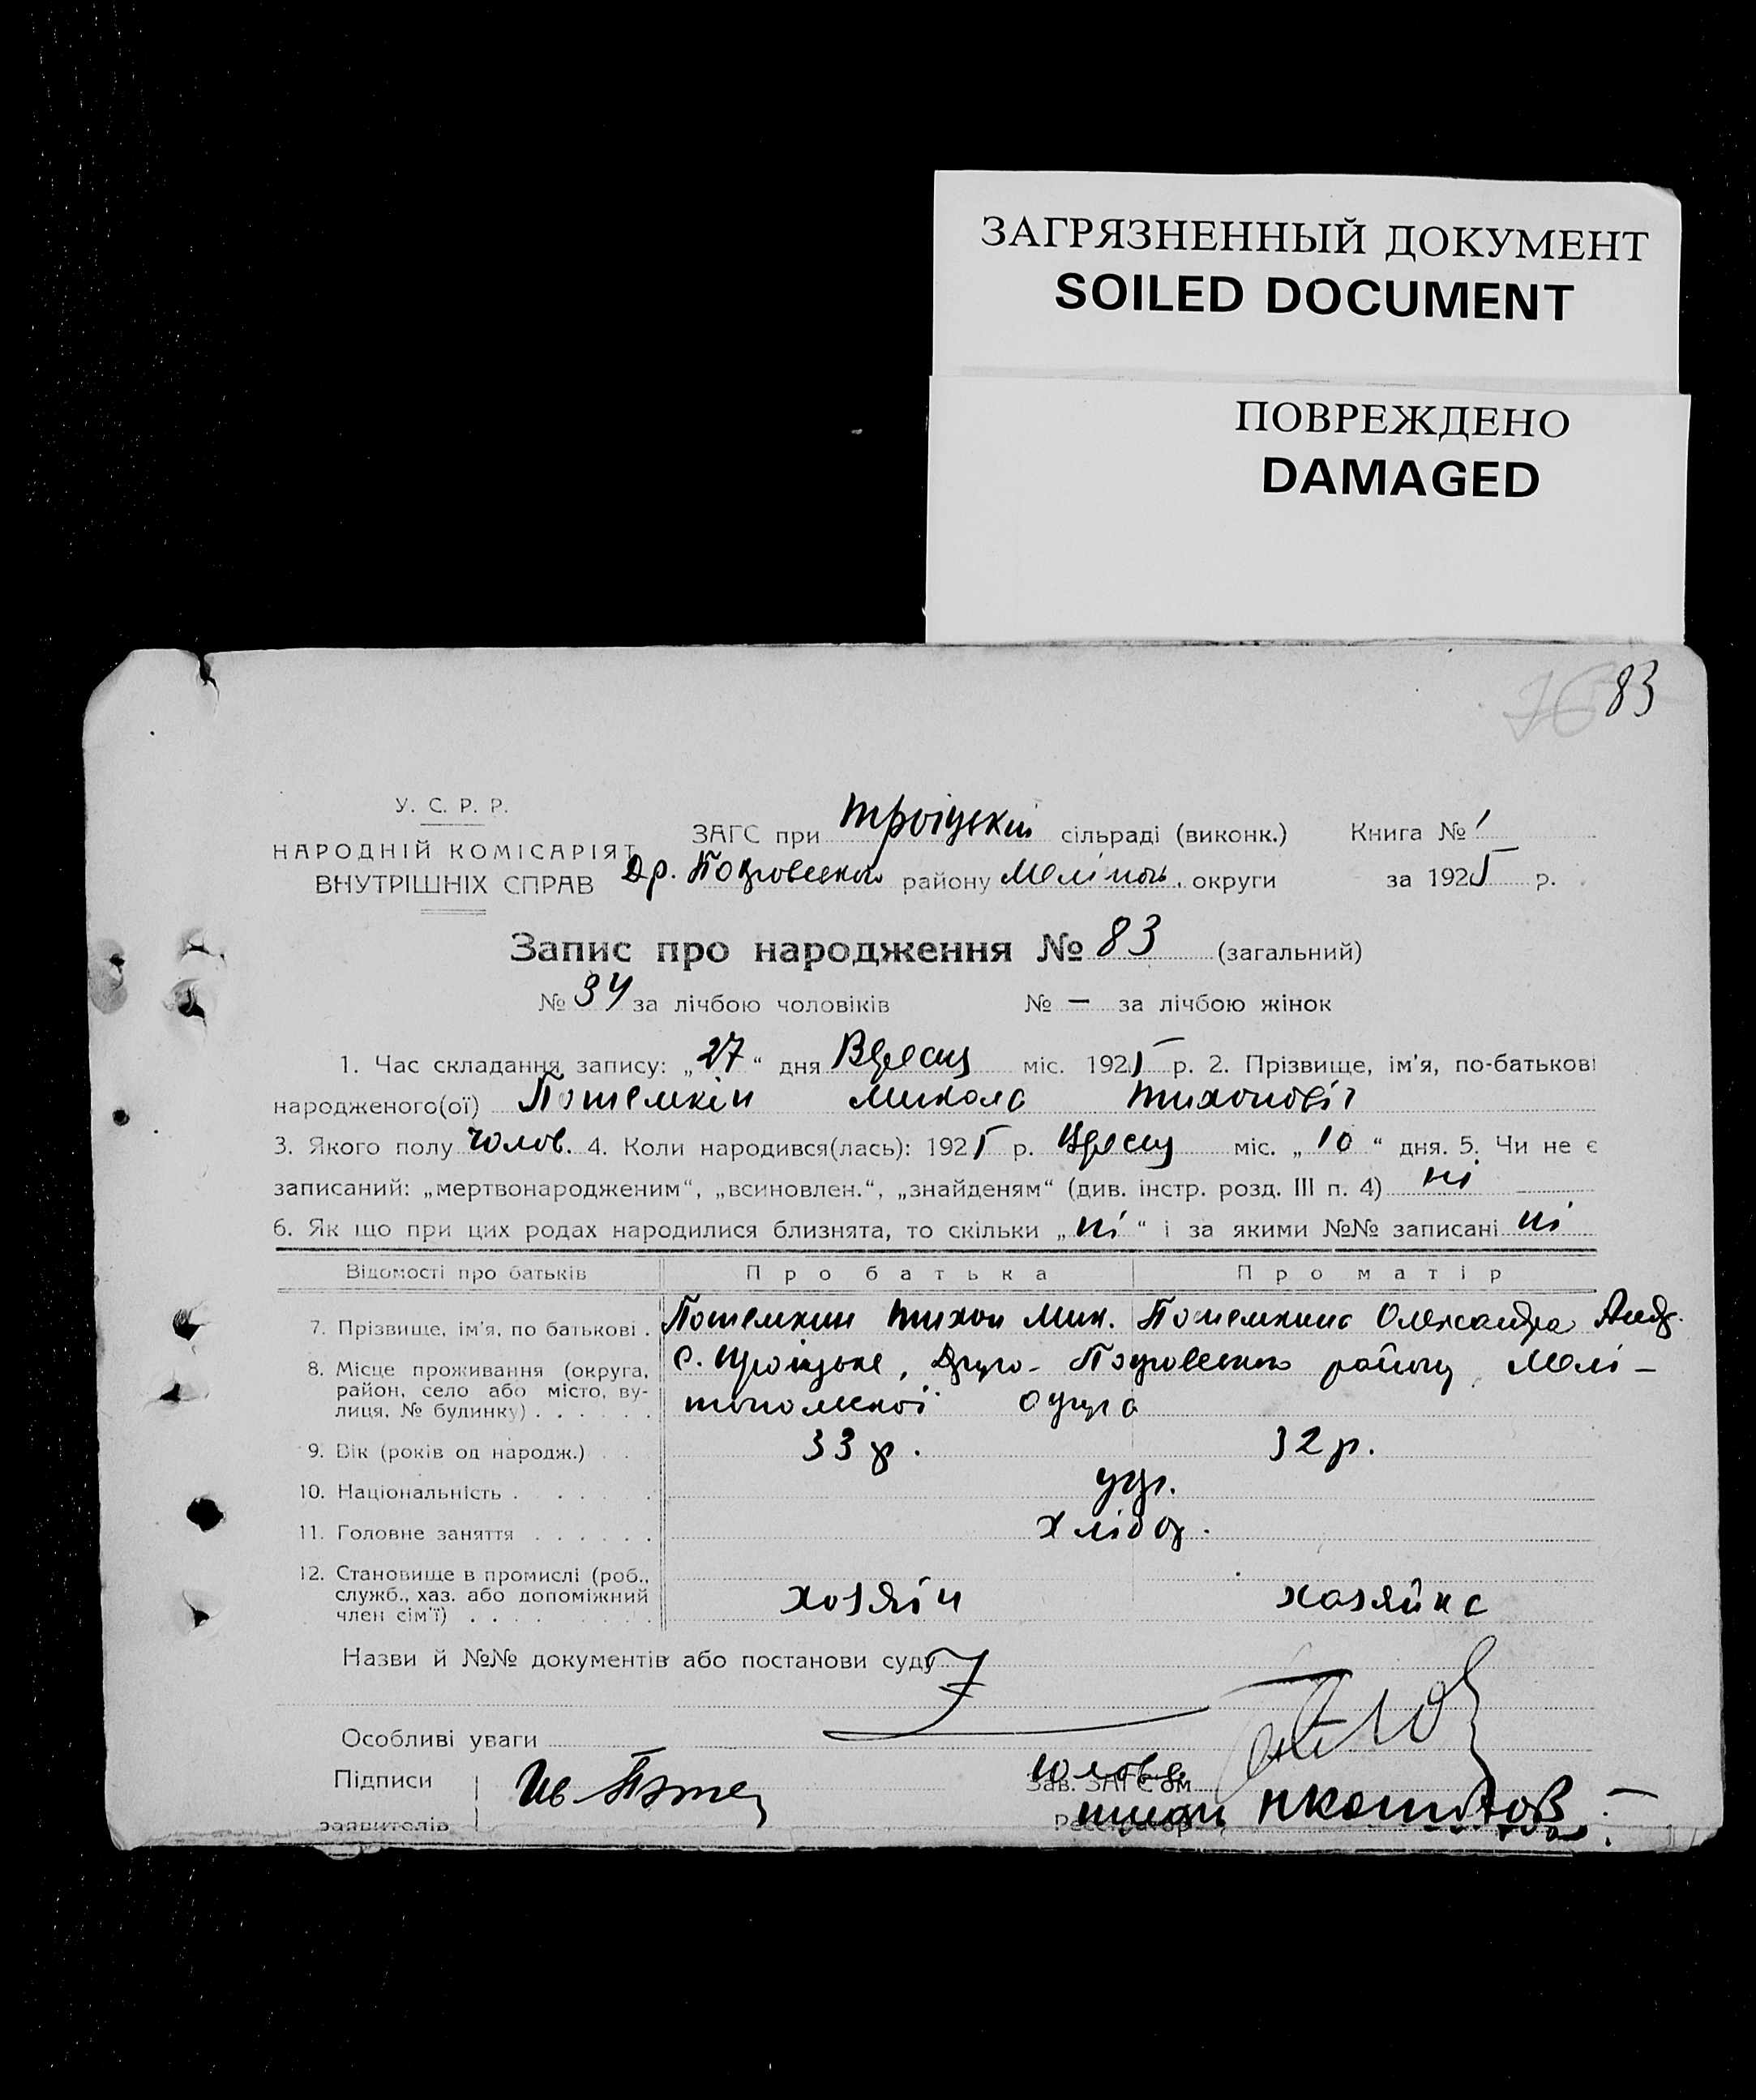 ЗАГРЯЗНЕННЫЙ ДОКУМЕНТ
SOILED DOCUMENT
ПОВРЕЖДЕНО
DAMAGED
76 83
У. С. Р. Р.
НАРОДНІЙ КОМІСАРІЯТ
ВНУТРІШНІХ СПРАВ
ЗАГС при Троіцькій сільраді (виконк.) Книга № 1
Др. Покровського району Мелітоп. округи за 1925 р.
Запис про народження № 83 (загальний)
№ 34 за лічбою чоловіків № — за лічбою жінок
1. Час складання запису: „27“ дня Вересня міс. 1925 р. 2. Прізвище, ім'я, по-батькові
народженого(ої) Потемкін Микола Тихонові
3. Якого полу чолов. 4. Коли народився(лась): 1925 р. Вересня міс. „10“ дня. 5. Чи не є
записаний: „мертвонародженим“, „всиновлен.“, „знайденям“ (див. інстр. розд. III п. 4) ні
6. Як що при цих родах народилися близнята, то скільки „ні“ і за якими №№ записані ні
Відомості про батьків Про батька Про матір
7. Прізвище, ім'я, по батькові . Потемкин Тихон Мик. Потемкина Олександра Андр.
8. Місце проживання (округа, район, село або місто, вулиця, № будинку) . . . . . . с. Троіцьке, Друго-Покровського району Мелі-
топольскоі округа
9. Вік (років од народж.) . . 33 р. 32 р.
10. Національність . . . . . укр.
11. Головне заняття . . . . . . хлібор.
12. Становище в промислі (роб., служб., хаз. або допоміжний член сім'ї) . . . . хозяін хазяйка
Назви й №№ документів або постанови суду
Особливі уваги
Підписи
заявителів
Голова
Зав. ЗАГС'ом
Реєстратор